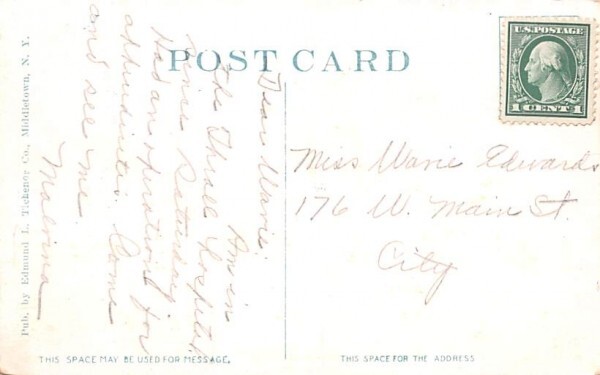 POST CARD
U.S. POSTAGE
1 CENT 1
Dear Marie:
Am in
the Thrall Hospital
since Saturday
Had an operation for
appendicitis. Come
and see me.
Malvina
Miss Marie Edwards
176 W. Main St.
City
Pub. by Edmund L. Tichenor Co., Middletown, N. Y.
THIS SPACE MAY BE USED FOR MESSAGE.
THIS SPACE FOR THE ADDRESS